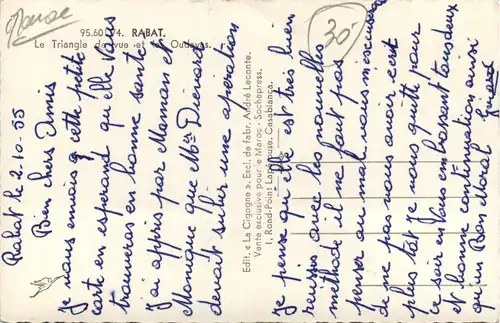 Maroc
95.60.74. RABAT.
Le Triangle de vue et les Oudayas.
30
Edit. « La Cigogne ». Excl. de fabr. André Leconte.
Vente exclusive pour le Maroc - Sochepress.
1, Rond-Point Lapérouse, Casablanca.
Rabat le 2.10.55
Bien chers Amis
Je vous envoie cette petite
carte en espérant qu'elle vous
trouvera en bonne santé
J'ai appris par Maman et
Monique que Me
devait subir une opération
Je pense qu'elle est très bien
avec les nouvelles
méthode il ne faut pas
penser au
de ne pas vous avoir écrit
plus tôt je vous quitte pour
ce soir en vous embrassant tous deux
et bonne continuation ainsi
qu'un Bon Moral